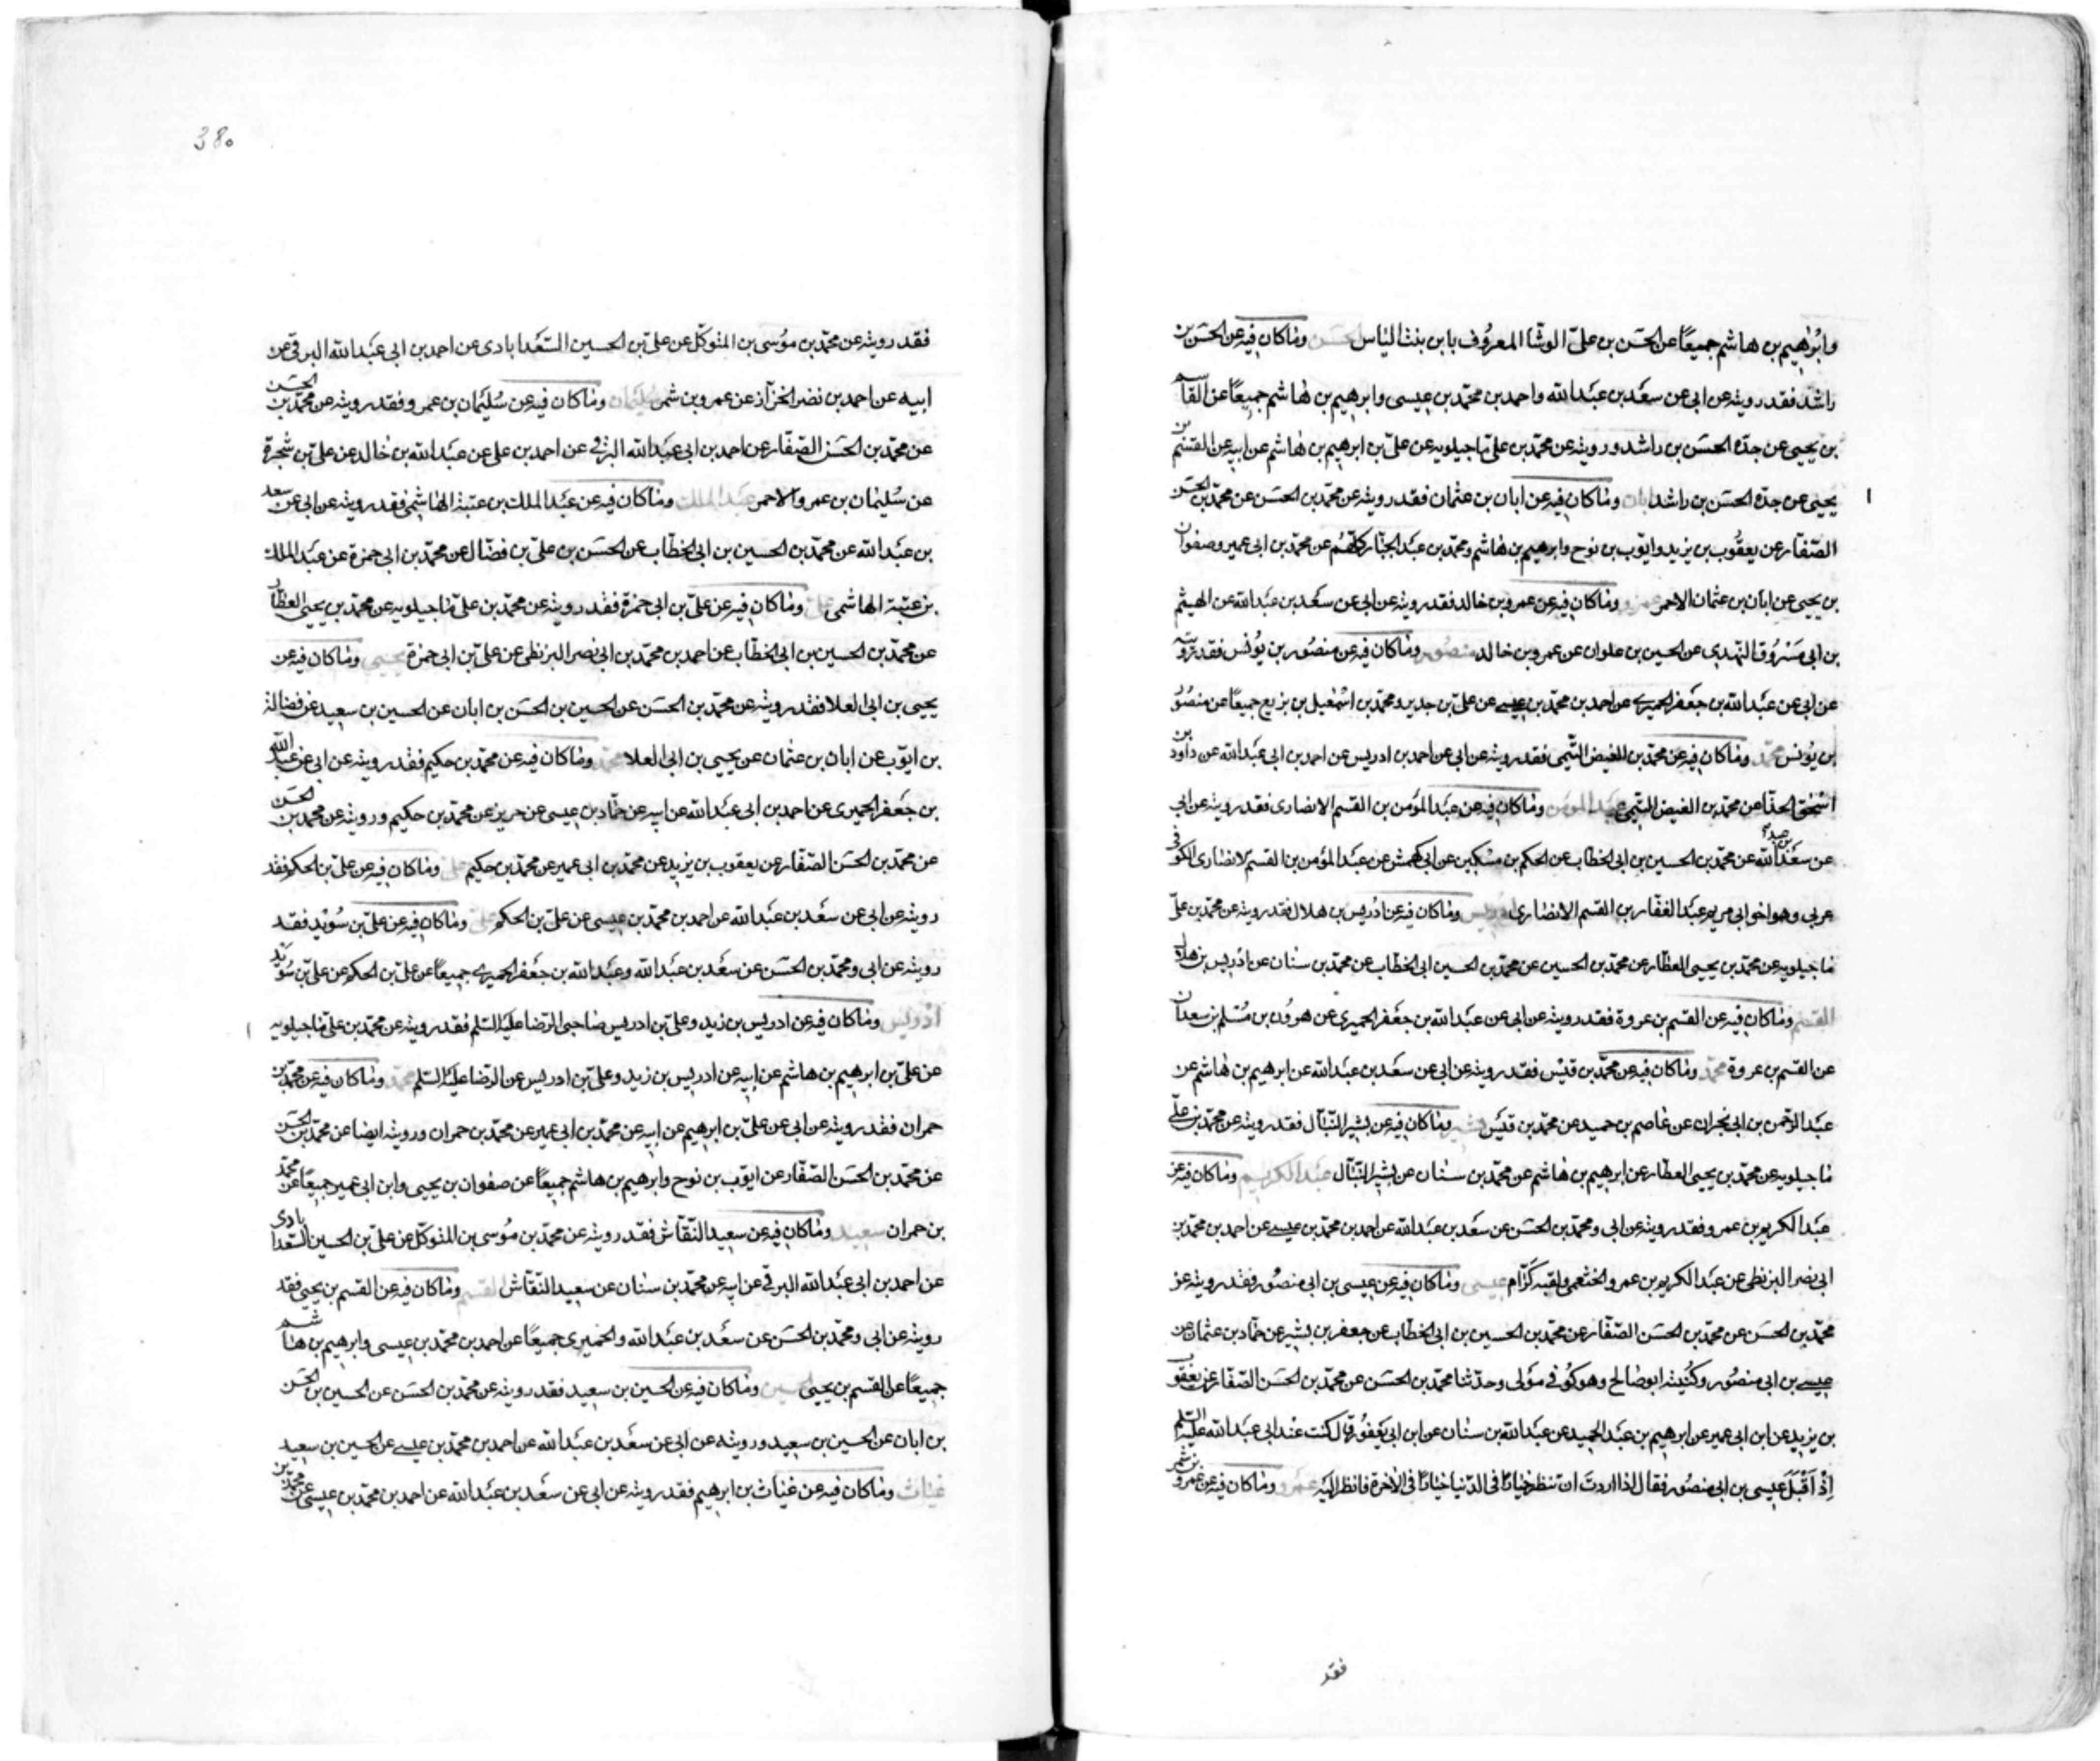 وابرٰهيم بن هاشم جميعًا عن الحسَن بن علىّ الوشّا المعرُوف بابن بنت الياس الحسَن وماكان فيه عن الحسَن بن
راشد فقد رويته عن ابى عن سعَد بن عبَد الله واحمد بن محمّد بن عيسى وابرهيم بن هٰاشم جميعًا عن القاسم
بن يحيى عن جدّه الحسَن بن راشد ورويته عن محمّد بن علىّ ماجيلويه عن علىّ بن ابرهيم بن هٰاشم عن ابيه عن القسم بن
يحيى عن جدّه الحسَن بن راشد ابان وماكان فيه عن ابان بن عثمان فقد رويته عن محمّد بن الحسَن عن محمّد بن الحسَن
الصّفار عن يعقُوب بن يزيد وايّوب بن نوح وابرهيم بن هاشم ومحمّد بن عبَد الجبّار كلّهُم عن محمّد بن ابى عمير وصفوان
بن يحيى عن ابان بن عثمان الاحمر عمرو وماكان فيه عن عمرو بن خالد فقد رويته عن ابى عن سعَد بن عبَد الله عن الهيثم
بن ابى مسَرُوق النّهدى عن الحسين بن علوان عن عمرو بن خالد منصُور وماكان فيه عن منصُور بن يُونس فقد رويته
عن ابى عن عبَد الله بن جَعفر الحميرى عن احمد بن محمّد بن عيسى عن علىّ بن حديد ومحمّد بن اسْمٰعيل بن بزيع جميعًا عن منصُور
بن يُونس محمّد وماكان فيه عن محمّد بن الفيض التّيمى فقد رويته عن ابى عن احمد بن ادريس عن احمد بن ابى عبَد الله عن داود بن
اسْحٰق الحذّا عن محمّد بن الفيض التّيمى عبَد المؤمن وماكان فيه عن عبَد المؤمن بن القسم الانصارى فقد رويته عن ابى
عن سعَد بن عبد الله عن محمّد بن الحسين بن ابى الخطاب عن الحكم بن مسْكين عن ابى كهمش عن عبَد المؤمن بن القسم الانصارى الكوفى
عربى وهو اخو ابى مريم عبَد الغفّار بن القسم الانصارى ادريس وماكان فيه عن ادْريس بن هلال فقد رويته عن محمّد بن علىّ
ماجيلويه عن محمّد بن يحيى العطّار عن محمّد بن الحسين عن محمّد بن الحسين ابى الخطاب عن محمّد بن سنان عن ادْريس بن هلال
القسم وماكان فيه عن القسم بن عروة فقد رويته عن ابى عن عبَد الله بن جَعفر الحميرى عن هرُون بن مُسْلم بن سعدان
عن القسم بن عروة محمّد وماكان فيه عن محمّد بن قيْس فقد رويته عن ابى عن سعَد بن عبَد الله عن ابرهيم بن هٰاشم عن
عبَد الرّحمن بن ابى نجران عن عاصم بن حميد عن محمّد بن قيَس بشير وماكان فيه عن بشير النبّال فقد رويته عن محمّد بن علىّ
ماجيلويه عن محمّد بن يحيى العطار عن ابرهيم بن هٰاشم عن محمّد بن سنان عن بشير النبّال عبَد الكريم وماكان فيه عن
عبَد الكريم بن عمرو فقد رويته عن ابى ومحمّد بن الحسَن عن سعَد بن عبَد الله عن احمد بن محمّد بن عيسى عن احمد بن محمّد بن
ابى نصر البزنطى عن عبَد الكريم بن عمرو الخثعمى ولقبه كرّام عيسى وماكان فيه عن عيسى بن ابى منصُور فقد رويته عن
محمّد بن الحسَن عن محمّد بن الحسَن الصّفّار عن محمّد بن الحسين بن ابى الخطّاب عن جعفر بن بشير عن حمّاد بن عثمان عن
عيسى بن ابى منصُور وكُنيته ابو صٰالح وهو كوُفى مَولى وحدّثنا محمّد بن الحسَن عن محمّد بن الحسَن الصّفّار عن يعقُوب
بن يزيد عن ابن ابى عمير عن ابرهيم بن عبَد الحميد عن عبَد الله بن سنان عن ابن ابى يَعْفُور قال كنت عنْد ابى عبَد الله عليه السّلم
اِذْ اَقْبَلَ عيسى بن ابى منصُور فقال اذا اردت ان تنظر خيارًا فى الدّنيا خيارًا فى الآخرة فانظر اليه عمَرو وماكان فيه عن عمرو بن شمر
فقد
380
فقد رويته عن محمّد بن موُسى بن المتوكّل عن علىّ بن الحسين السّعَدابادى عن احمد بن ابى عبَد الله البرقى عن
ابيه عن احمد بن نضر الخزّاز عن عمرو بن شمر سُليمان وماكان فيه عن سُليَمان بن عمرو فقد رويته عن محمّد بن الحسَن
عن محمّد بن الحسَن الصّفّار عن احمد بن ابى عبَد الله البرقى عن احمد بن على عن عبَد الله بن خالد عن علىّ بن شجرة
عن سُليمٰان بن عمرو الاحمر عبَد الملك وماكان فيه عن عبَد الملك بن عتبة الهاشمى فقد رويته عن ابى عن سعد
بن عبَد الله عن محمّد بن الحسين بن ابى الخطّاب عن الحسَن بن علىّ بن فضّال عن محمّد بن ابى حمزة عن عبَد الملك
بن عتبة الهاشمى على وماكان فيه عن علىّ بن ابى حمزة فقد رويته عن محمّد بن علىّ ماجيلويه عن محمّد بن يحيى العطّار
عن محمّد بن الحسين بن ابى الخطّاب عن احمد بن محمّد بن ابى نصر البزنطى عن علىّ بن ابى حمزة يحيى وماكان فيه عن
يحيى بن ابى العلا فقد رويته عن محمّد بن الحسَن عن الحسين بن الحسَن بن ابان عن الحسين بن سعيد عن فضالة
بن ايّوب عن ابان بن عثمان عن يحيى بن ابى العلا محمّد وماكان فيه عن محمّد بن حكيم فقد رويته عن ابى عن عبد الله
بن جَعفر الحميرى عن احمد بن ابى عبَد الله عن ابيه عن حمّاد بن عيسى عن حريز عن محمّد بن حكيم ورويته عن محمد بن الحسَن
عن محمّد بن الحسَن الصّفّار عن يعقوب بن يزيد عن محمّد بن ابى عمير عن محمّد بن حكيم على وماكان فيه عن علىّ بن الحكم فقد
رويته عن ابى عن سعَد بن عبَد الله عن احمد بن محمّد بن عيسى عن علىّ بن الحكم علىّ وماكان فيه عن علىّ بن سُويْد فقد
رويته عن ابى ومحمّد بن الحسَن عن سعَد بن عبَد الله وعبَد الله بن جَعفر الحميرى جميعًا عن علىّ بن الحكم عن علىّ بن سُوَيْد
ادْريس وماكان فيه عن ادريس بن زيد وعلىّ بن ادريس صاحبى الرّضا عليَه السّلم فقد رويته عن محمّد بن علىّ ماجيلويه
عن علىّ بن ابرهيم بن هاشم عن ابيه عن ادريس بن زيد وعلىّ بن ادريس عن الرضا عليَه السّلم محمّد وماكان فيه عن محمّد بن
حمران فقد رويته عن ابى عن علىّ بن ابرهيم عن ابيه عن محمّد بن ابى عمير عن محمّد بن حمران ورويته ايضا عن محمّد بن الحسَن
عن محمّد بن الحسَن الصّفّار عن ايّوب بن نوح وابرهيم بن هاشم جميعًا عن صفوان بن يحيى وابن ابى عمير جميعًا عن محمّد
بن حمران سعيد وماكان فيه عن سعيد النّقّاش فقد رويته عن محمّد بن مُوسى بن المتوكّل عن علىّ بن الحسين السّعدابادى
عن احمد بن ابى عبَد الله البرقى عن ابيه عن محمّد بن سنان عن سعيد النّقّاش القسم وماكان فيه عن القسم بن يحيى فقد
رويته عن ابى ومحمّد بن الحسَن عن سعَد بن عبَد الله والحميرى جميعًا عن احمد بن محمّد بن عيسى وابرهيم بن هاشم
جميعًا عن القسم بن يحيى الحسين وماكان فيه عن الحسين بن سعيد فقد رويته عن محمّد بن الحسَن عن الحسين بن الحسَن
بن ابان عن الحسين بن سعيد ورويته عن ابى عن سعَد بن عبَد الله عن احمد بن محمّد بن عيسى عن الحسين بن سعيد
غياث وماكان فيه عن غياث بن ابرهيم فقد رويته عن ابى عن سعَد بن عبَد الله عن احمد بن محمّد بن عيسى عن محمّد بن